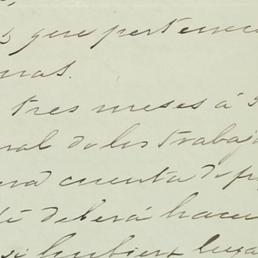 que pertenec
nas.
tres meses á
nal de los trabaj
era cuenta de
té deberá hacer
si hubiere luga